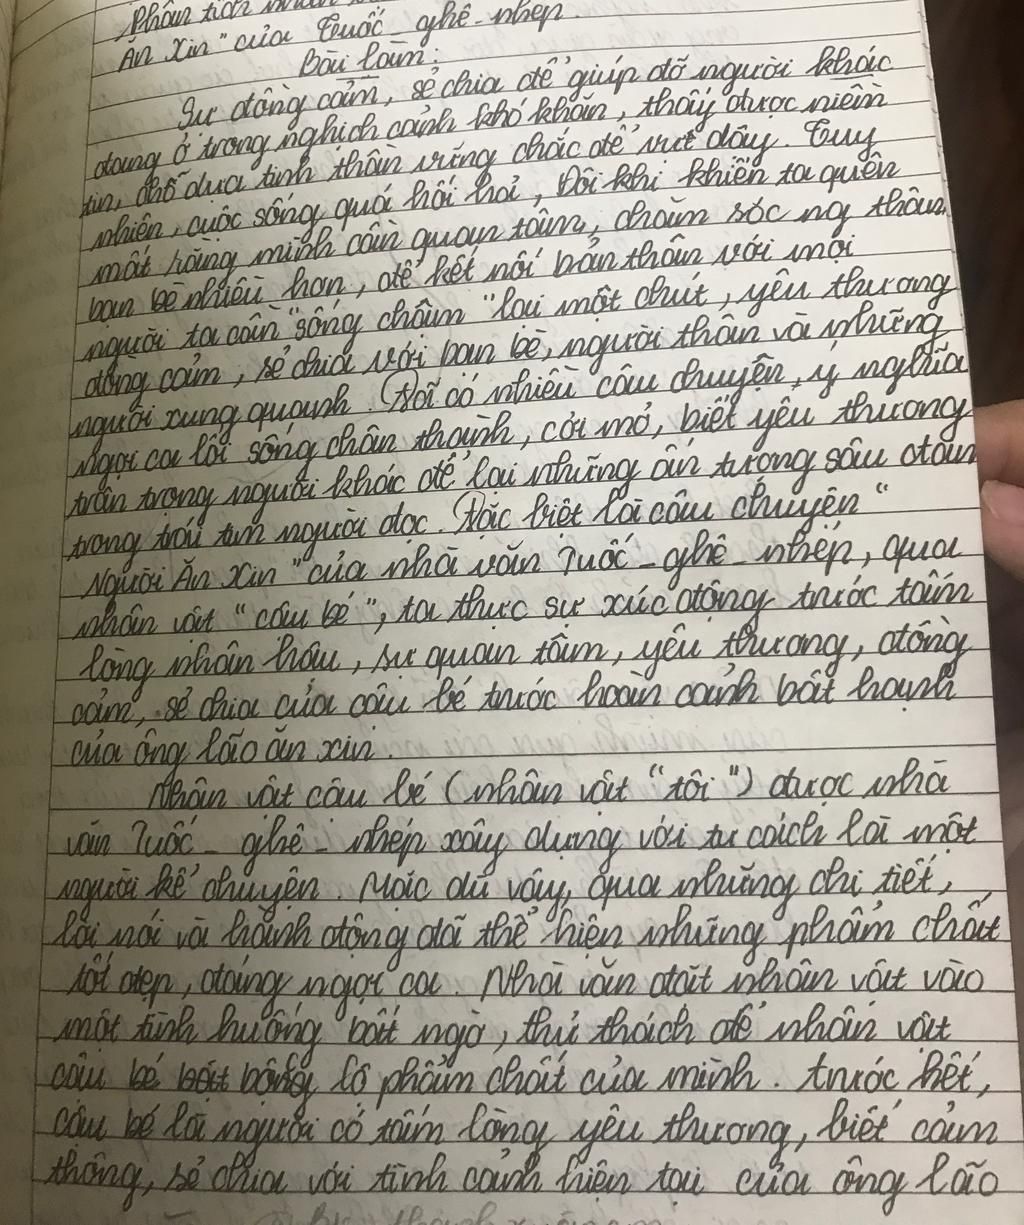 Phân tích nhân
Ăn Xin" của Tuốc - ghê - nhép.
Bài làm:
Sự đồng cảm, sẻ chia để giúp đỡ người khác
đang ở trong nghịch cảnh khó khăn, thấy được niềm
tin, chỗ dựa tinh thần vững chắc để vực dậy. Tuy
nhiên, cuộc sống quá hối hả, Đôi khi khiến ta quên
mất rằng mình cần quan tâm, chăm sóc ng thân,
bạn bè nhiều hơn, để kết nối bản thân với mọi
người ta cần "sống chậm" lại một chút, yêu thương
đồng cảm, sẻ chia với bạn bè, người thân và những
người xung quanh. Đã có nhiều câu chuyện, ý nghĩa
ngợi ca lối sống chân thành, cởi mở, biết yêu thương
trân trọng người khác để lại những ấn tượng sâu đậm
trong trái tim người đọc. Đặc biệt là câu chuyện "
Người Ăn Xin" của nhà văn Tuốc - ghê - nhép, qua
nhân vật "cậu bé", ta thực sự xúc động trước tấm
lòng nhân hậu, sự quan tâm, yêu thương, đồng
cảm, sẻ chia của cậu bé trước hoàn cảnh bất hạnh
của ông lão ăn xin.
Nhân vật cậu bé (nhân vật "tôi") được nhà
văn Tuốc - ghê - nhép xây dựng với tư cách là một
người kể chuyện. Mặc dù vậy, qua những chi tiết,
lời nói và hành động đã thể hiện những phẩm chất
tốt đẹp, đáng ngợi ca. Nhà văn đặt nhân vật vào
một tình huống bất ngờ, thử thách để nhân vật
cậu bé bộc lộ phẩm chất của mình. trước hết,
cậu bé là người có tấm lòng yêu thương, biết cảm
thông, sẻ chia với tình cảnh hiện tại của ông lão